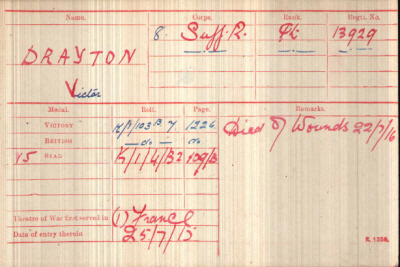 Name. Corps. Rank. Regtl. No.
8. Suff. R. Pte 13929
DRAYTON
Victor
Medal. Roll. Page. Remarks.
VICTORY 1226 Died of Wounds 22/7/16
BRITISH —do— do
15 STAR K/1/4/B2
Theatre of War first served in (1) France
Date of entry therein 25/7/15
K. 1380.